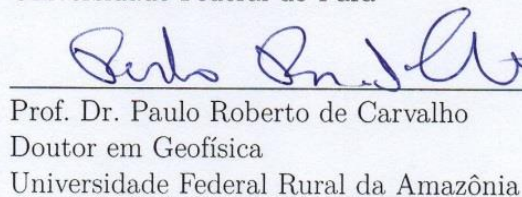 Prof. Dr. Paulo Roberto de Carvalho
Doutor em Geofísica
Universidade Federal Rural da Amazônia